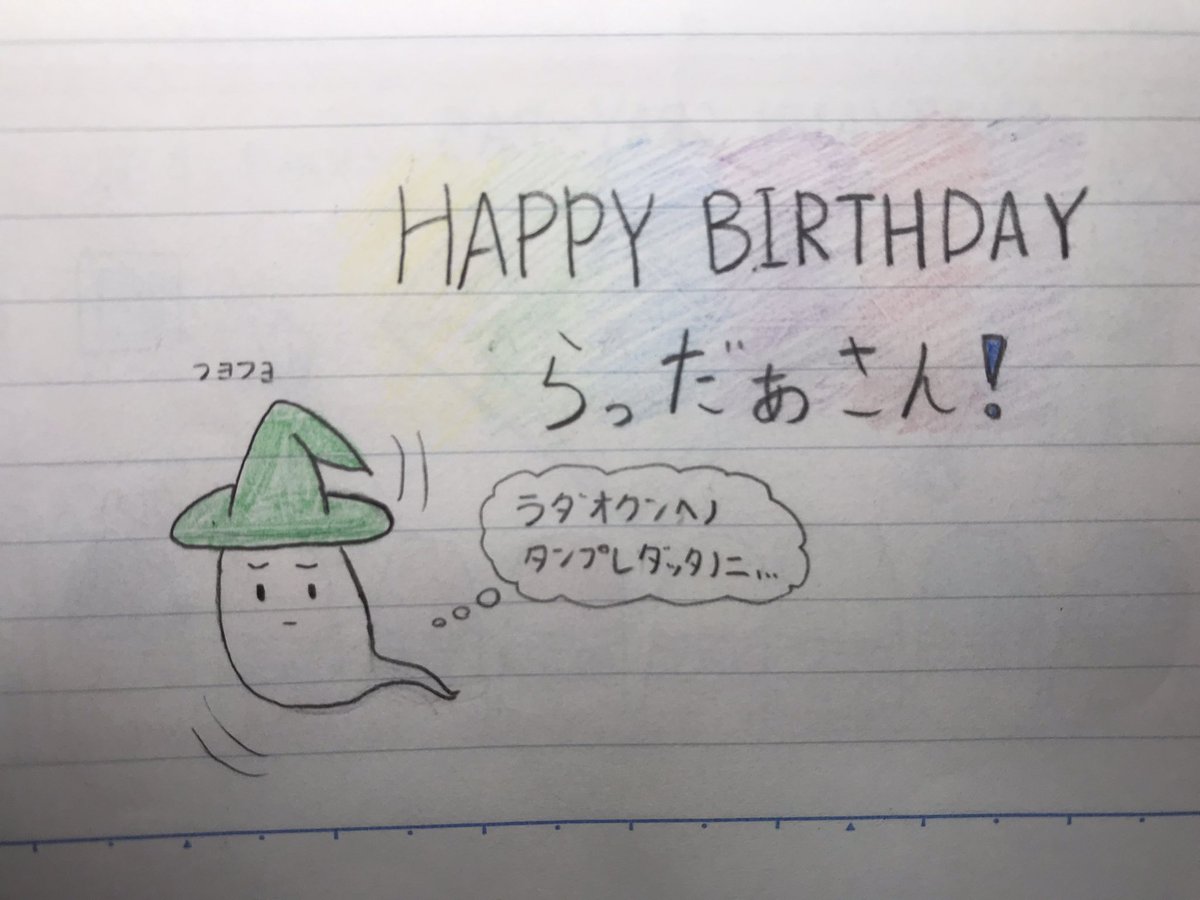 HAPPY BIRTHDAY
らっだぁさん!
フヨフヨ
ラダオクンヘノ
タンプレダッタノニ...